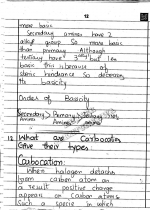 12
more basic
Secondary amines have 2
alkyl group So more basic
than primary. Although
tertiary have 3 alkyl but less
basic this is because of
steric hindrance So decreases
the basicity
Order of Basicity
Secondary > Primary > Tertiary >
Amine Amine
12 What are Carbocation
Give their types
Carbocation:
When halogen detachs
from carbon atom as
a result positive charge
appears on carbon atoms
Such a specie in which